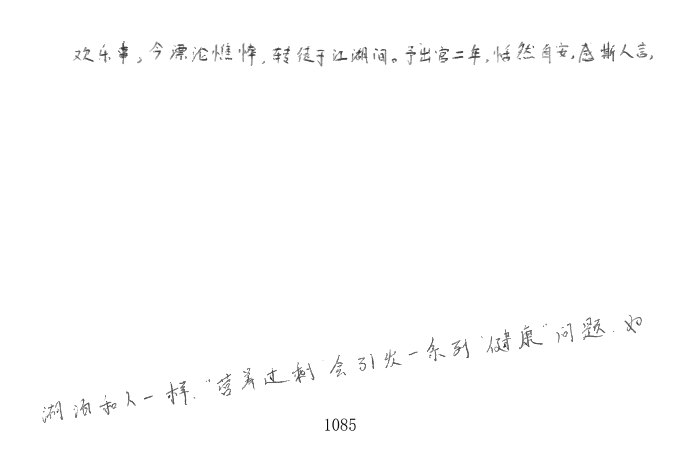 欢乐事，今漂沦憔悴，转徙于江湖间。予出官二年，恬然自安，感斯人言，
湖泊和人一样，“营养过剩”会引发一系列“健康”问题．如
1085